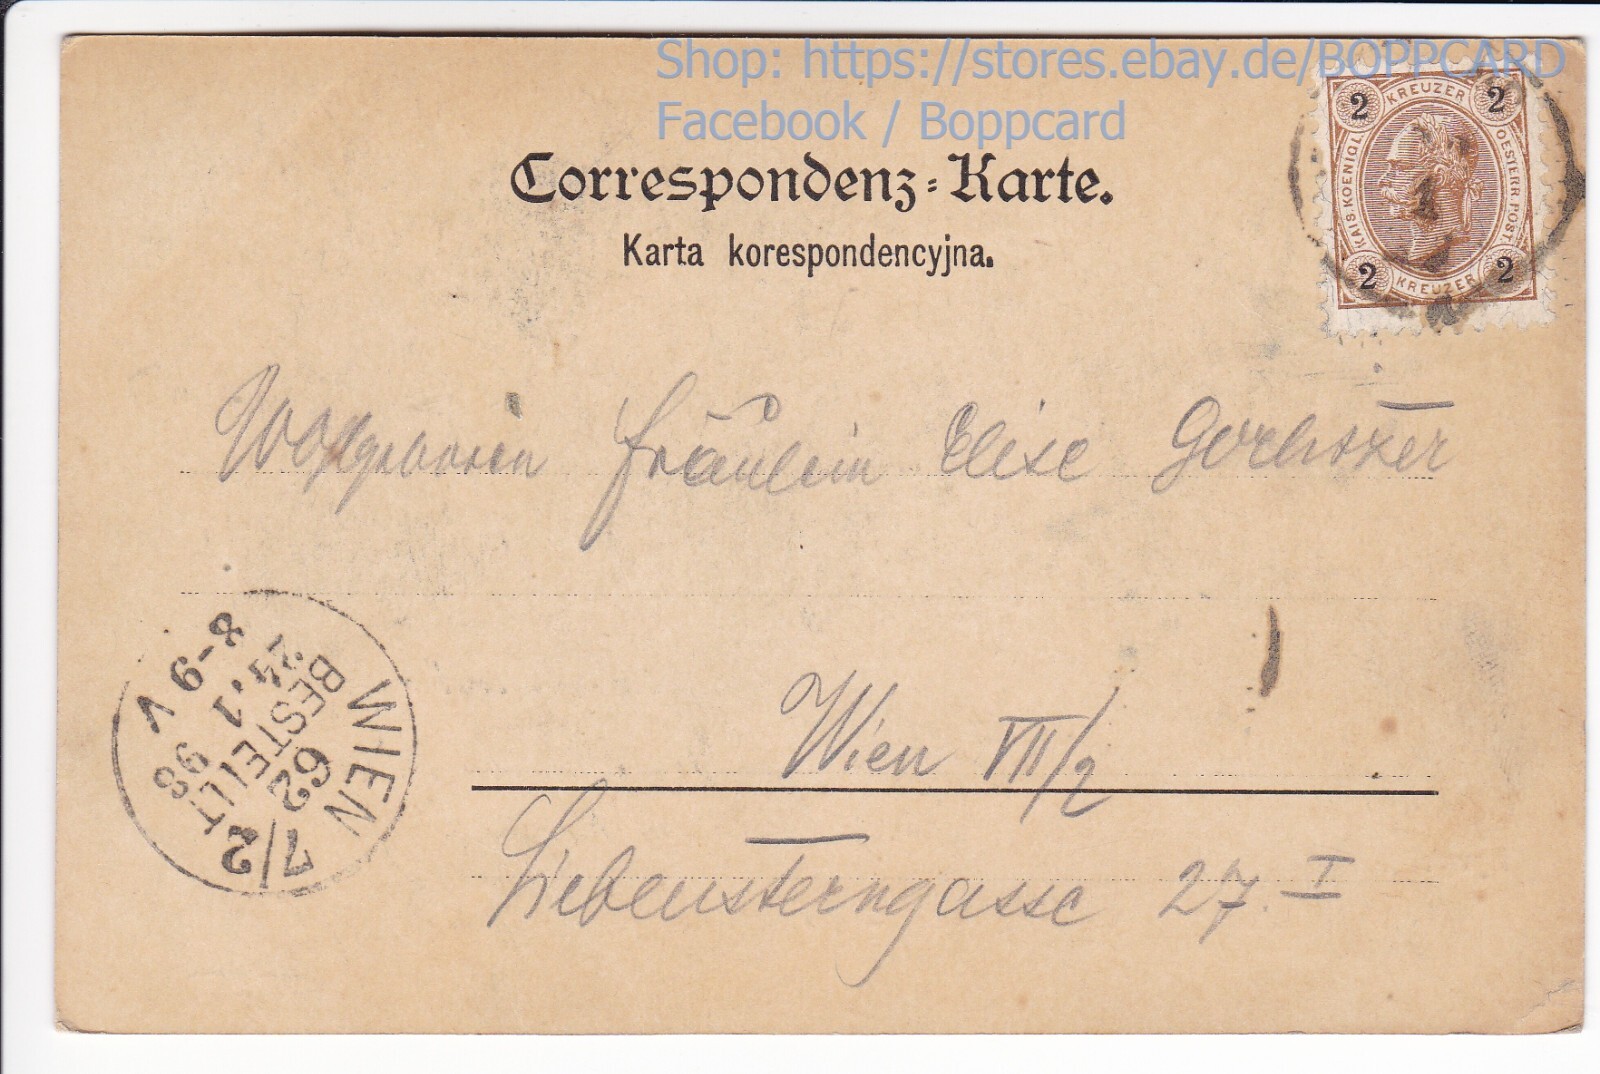 Shop: https://stores.ebay.de/BOPPCARD
Facebook / Boppcard
KREUZER
2 2
KAIS. KOENIGL. OESTERR. POST.
2 2
KREUZER
Correspondenz-Karte.
Karta korespondencyjna.
Fräulein Elise
Wien VII/2
27. I
WIEN 7/2
62
BESTELLT
24.1 98
8-9 V